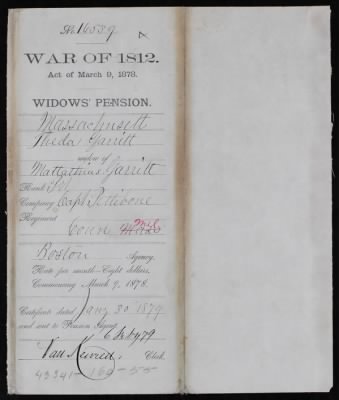 No. 16539
WAR OF 1812.
Act of March 9, 1878.
WIDOWS' PENSION.
Massachusett
Theda Garritt
widow of
Mattathias Garritt
Rank
Company Capt Pettibone
Regiment
Conn Mil
Boston Agency.
Rate per month—Eight dollars.
Commencing March 9, 1878.
Certificate dated Jany 30 1879
and sent to Pension Agent
6 Feby 79
Clerk.